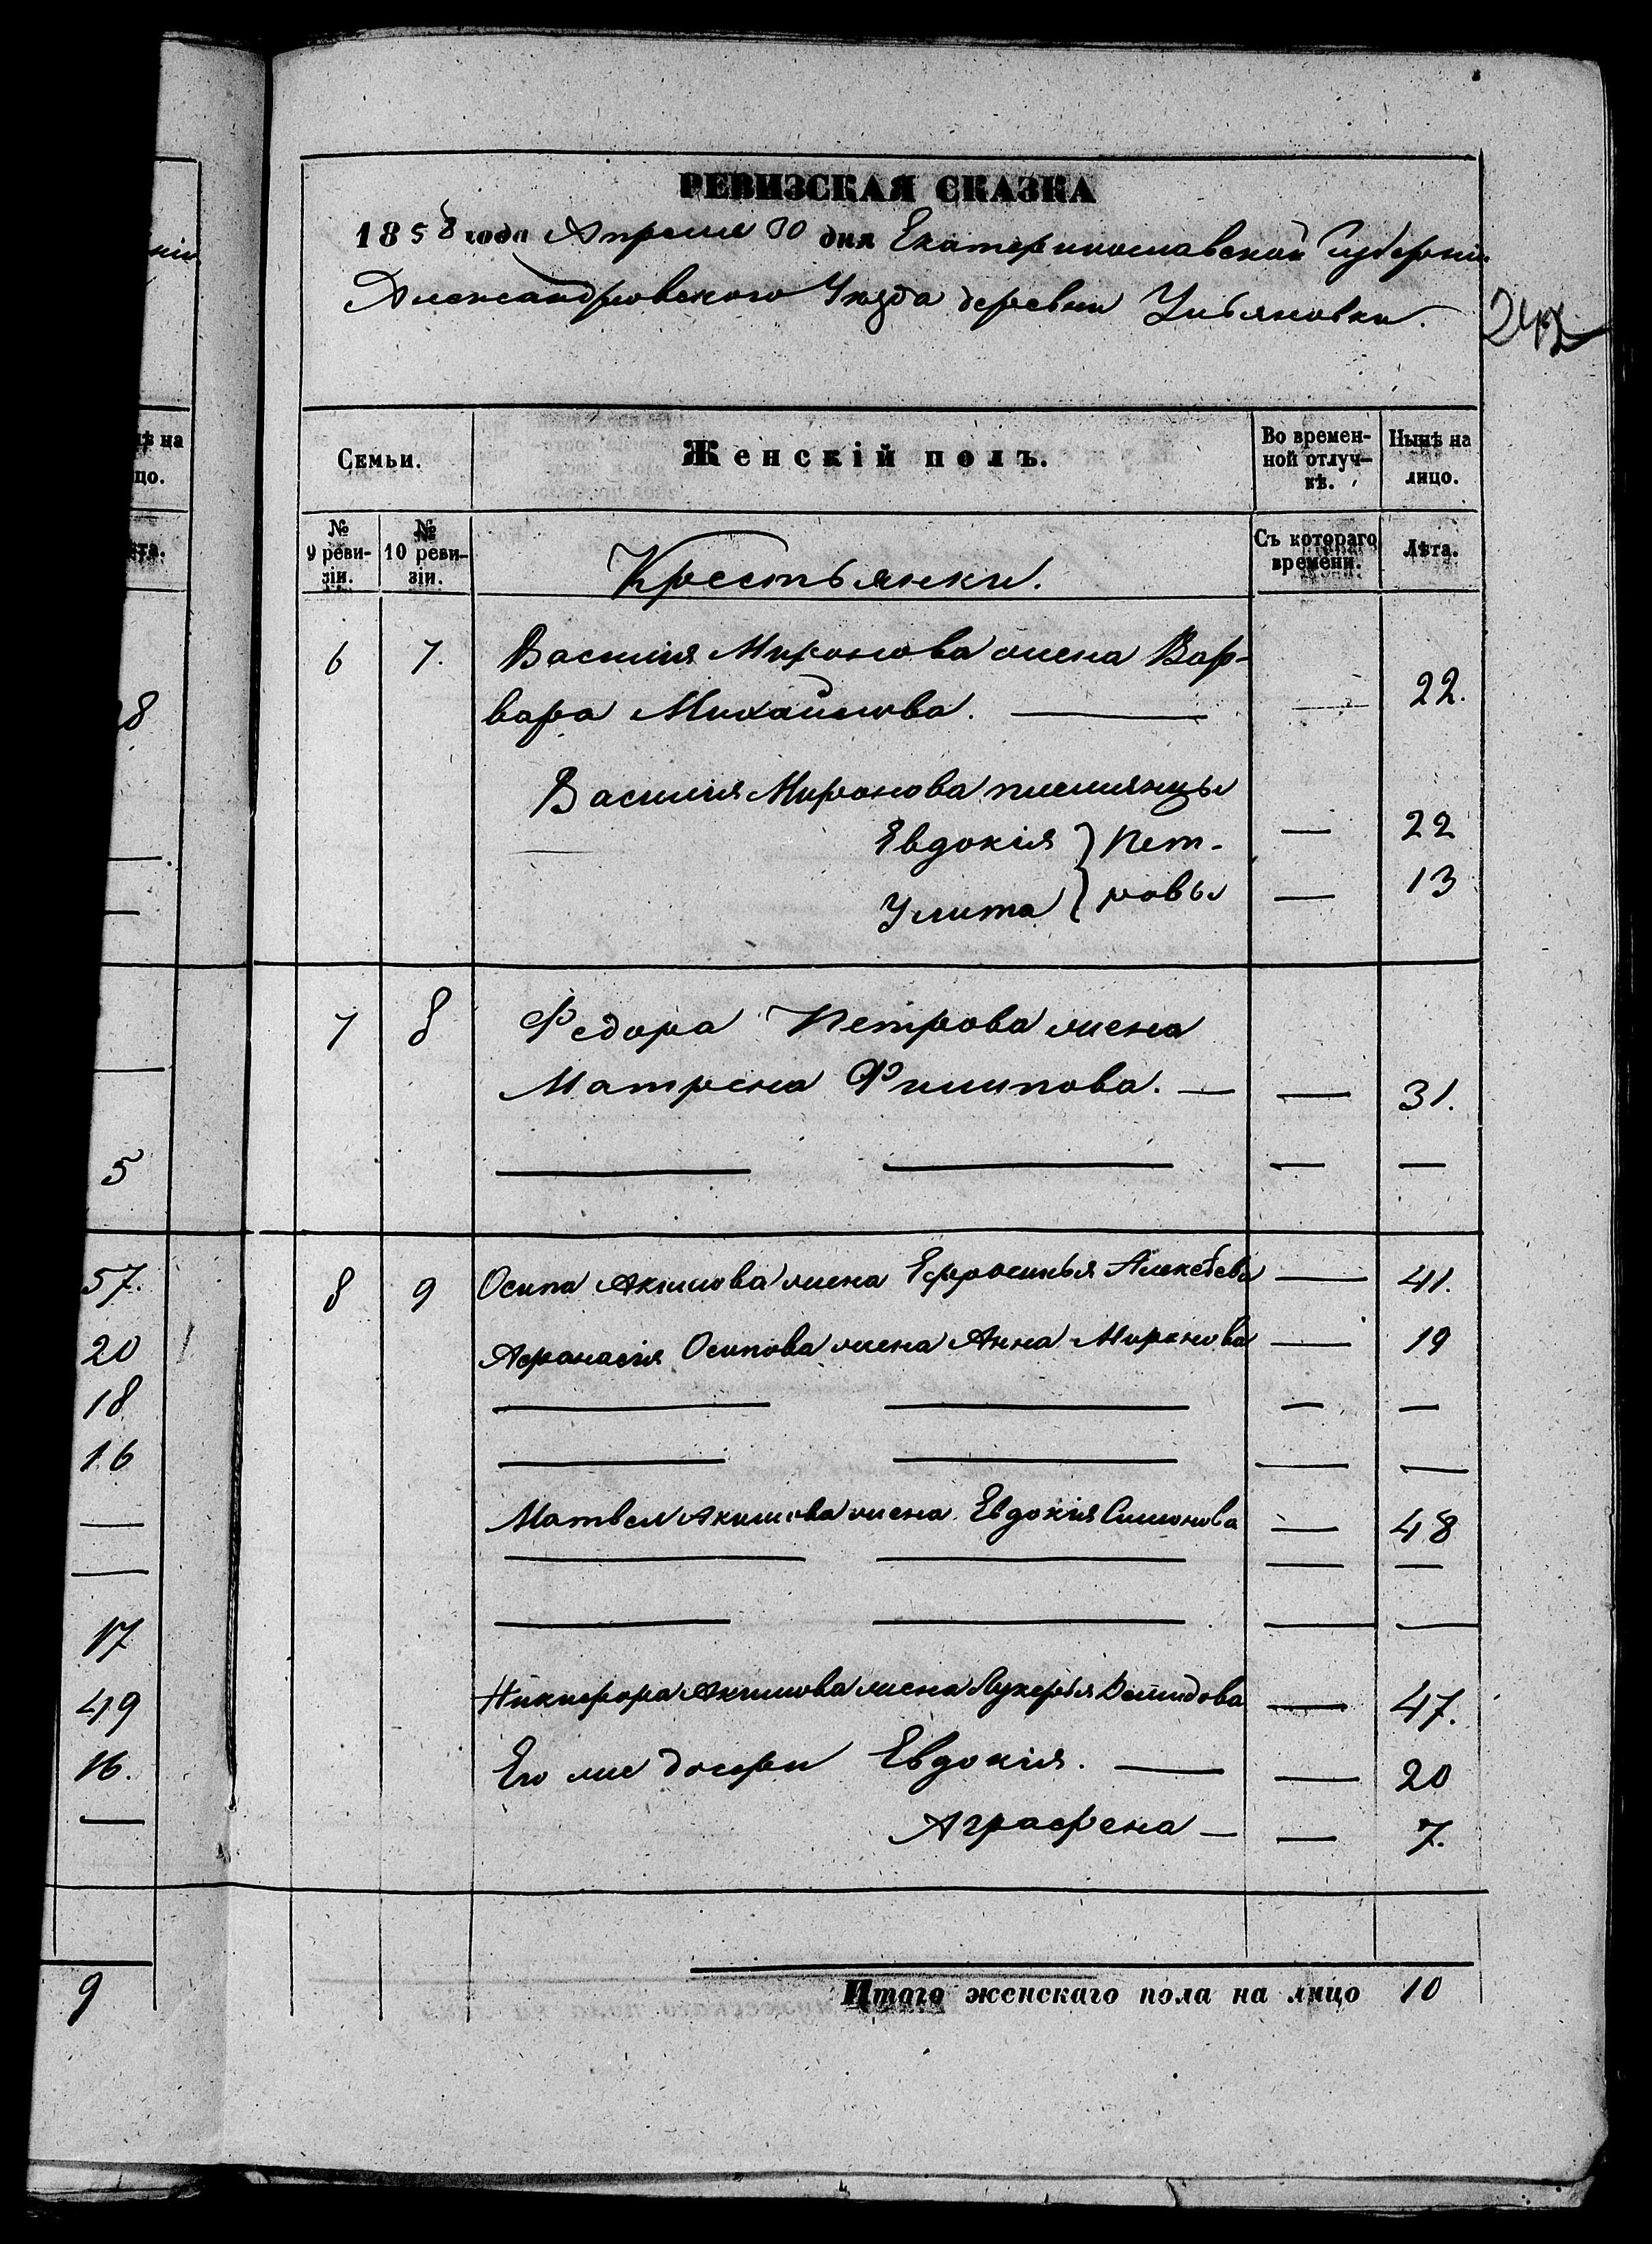 РЕВИЗСКАЯ СКАЗКА
1858 года Апреля 30 дня Екатеринославской Губернии
Александровского Уезда деревни Ульяновки.
Семьи.
Женскій полъ.
Во времен-
ной отлуч-
кѣ.
Нынѣ на
лицо.
№
9 реви-
зіи.
№
10 реви-
зіи.
Крестьянки.
Съ котораго
времени.
Лѣта.
6 7. Василия Миронова жена Вар-
вара Михайлова. — — 22.
Василия Миронова племянцы
Евдокія } Пет- — 22
Улита } ровы — 13
7 8 Федора Петрова жена
Матрена Филипова. — — 31.
— — — —
8 9 Осипа Акимова жена Ефросинья Алексѣева — 41.
Афанасія Осипова жена Анна Миронова — 19
— — — —
— — — —
Матвея Акимова жена Евдокія Симонова — 48
— — — —
— — — —
Никифора Акимова жена Лукерья Демидова — 47.
Его же дочери Евдокія. — — 20
Аграфена — — 7.
Итого женскаго пола на лицо 10
нѣ на
цо.
8
5
57.
20
18
16
17
49
16.
9